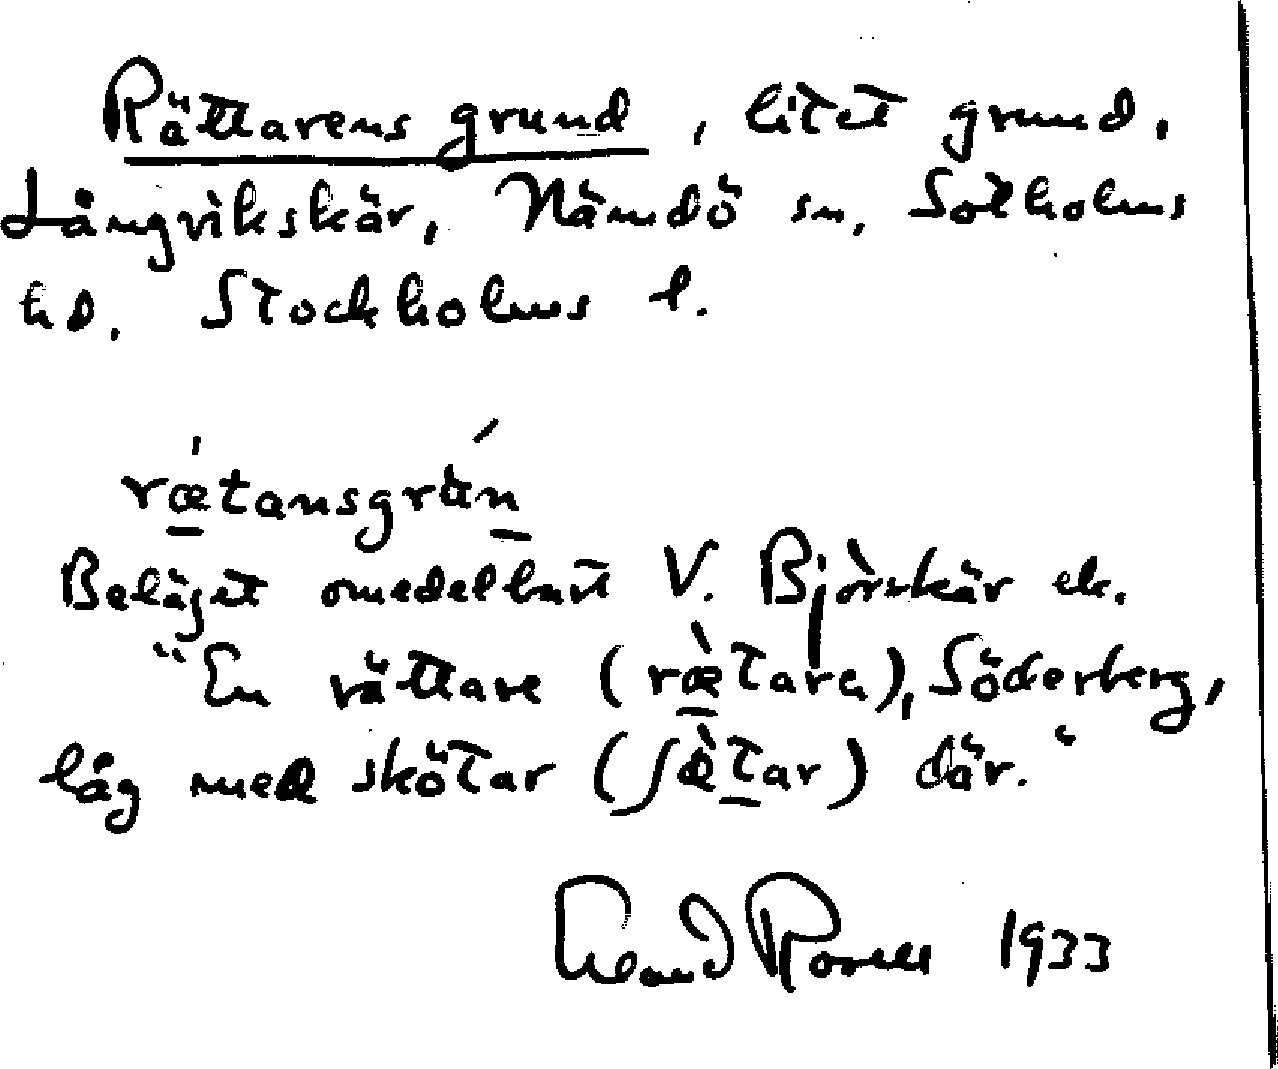 Rättarens grund, litet grund.
Långvikskär, Nämdö sn, Sotholms
hd. Stockholms l.
rǽtansgrún
Beläget omedelbart V. Björskär etc.
"En rättare (ræ̀tare), Söderberg,
låg med skötar (ʃö̀tar) där."
1933